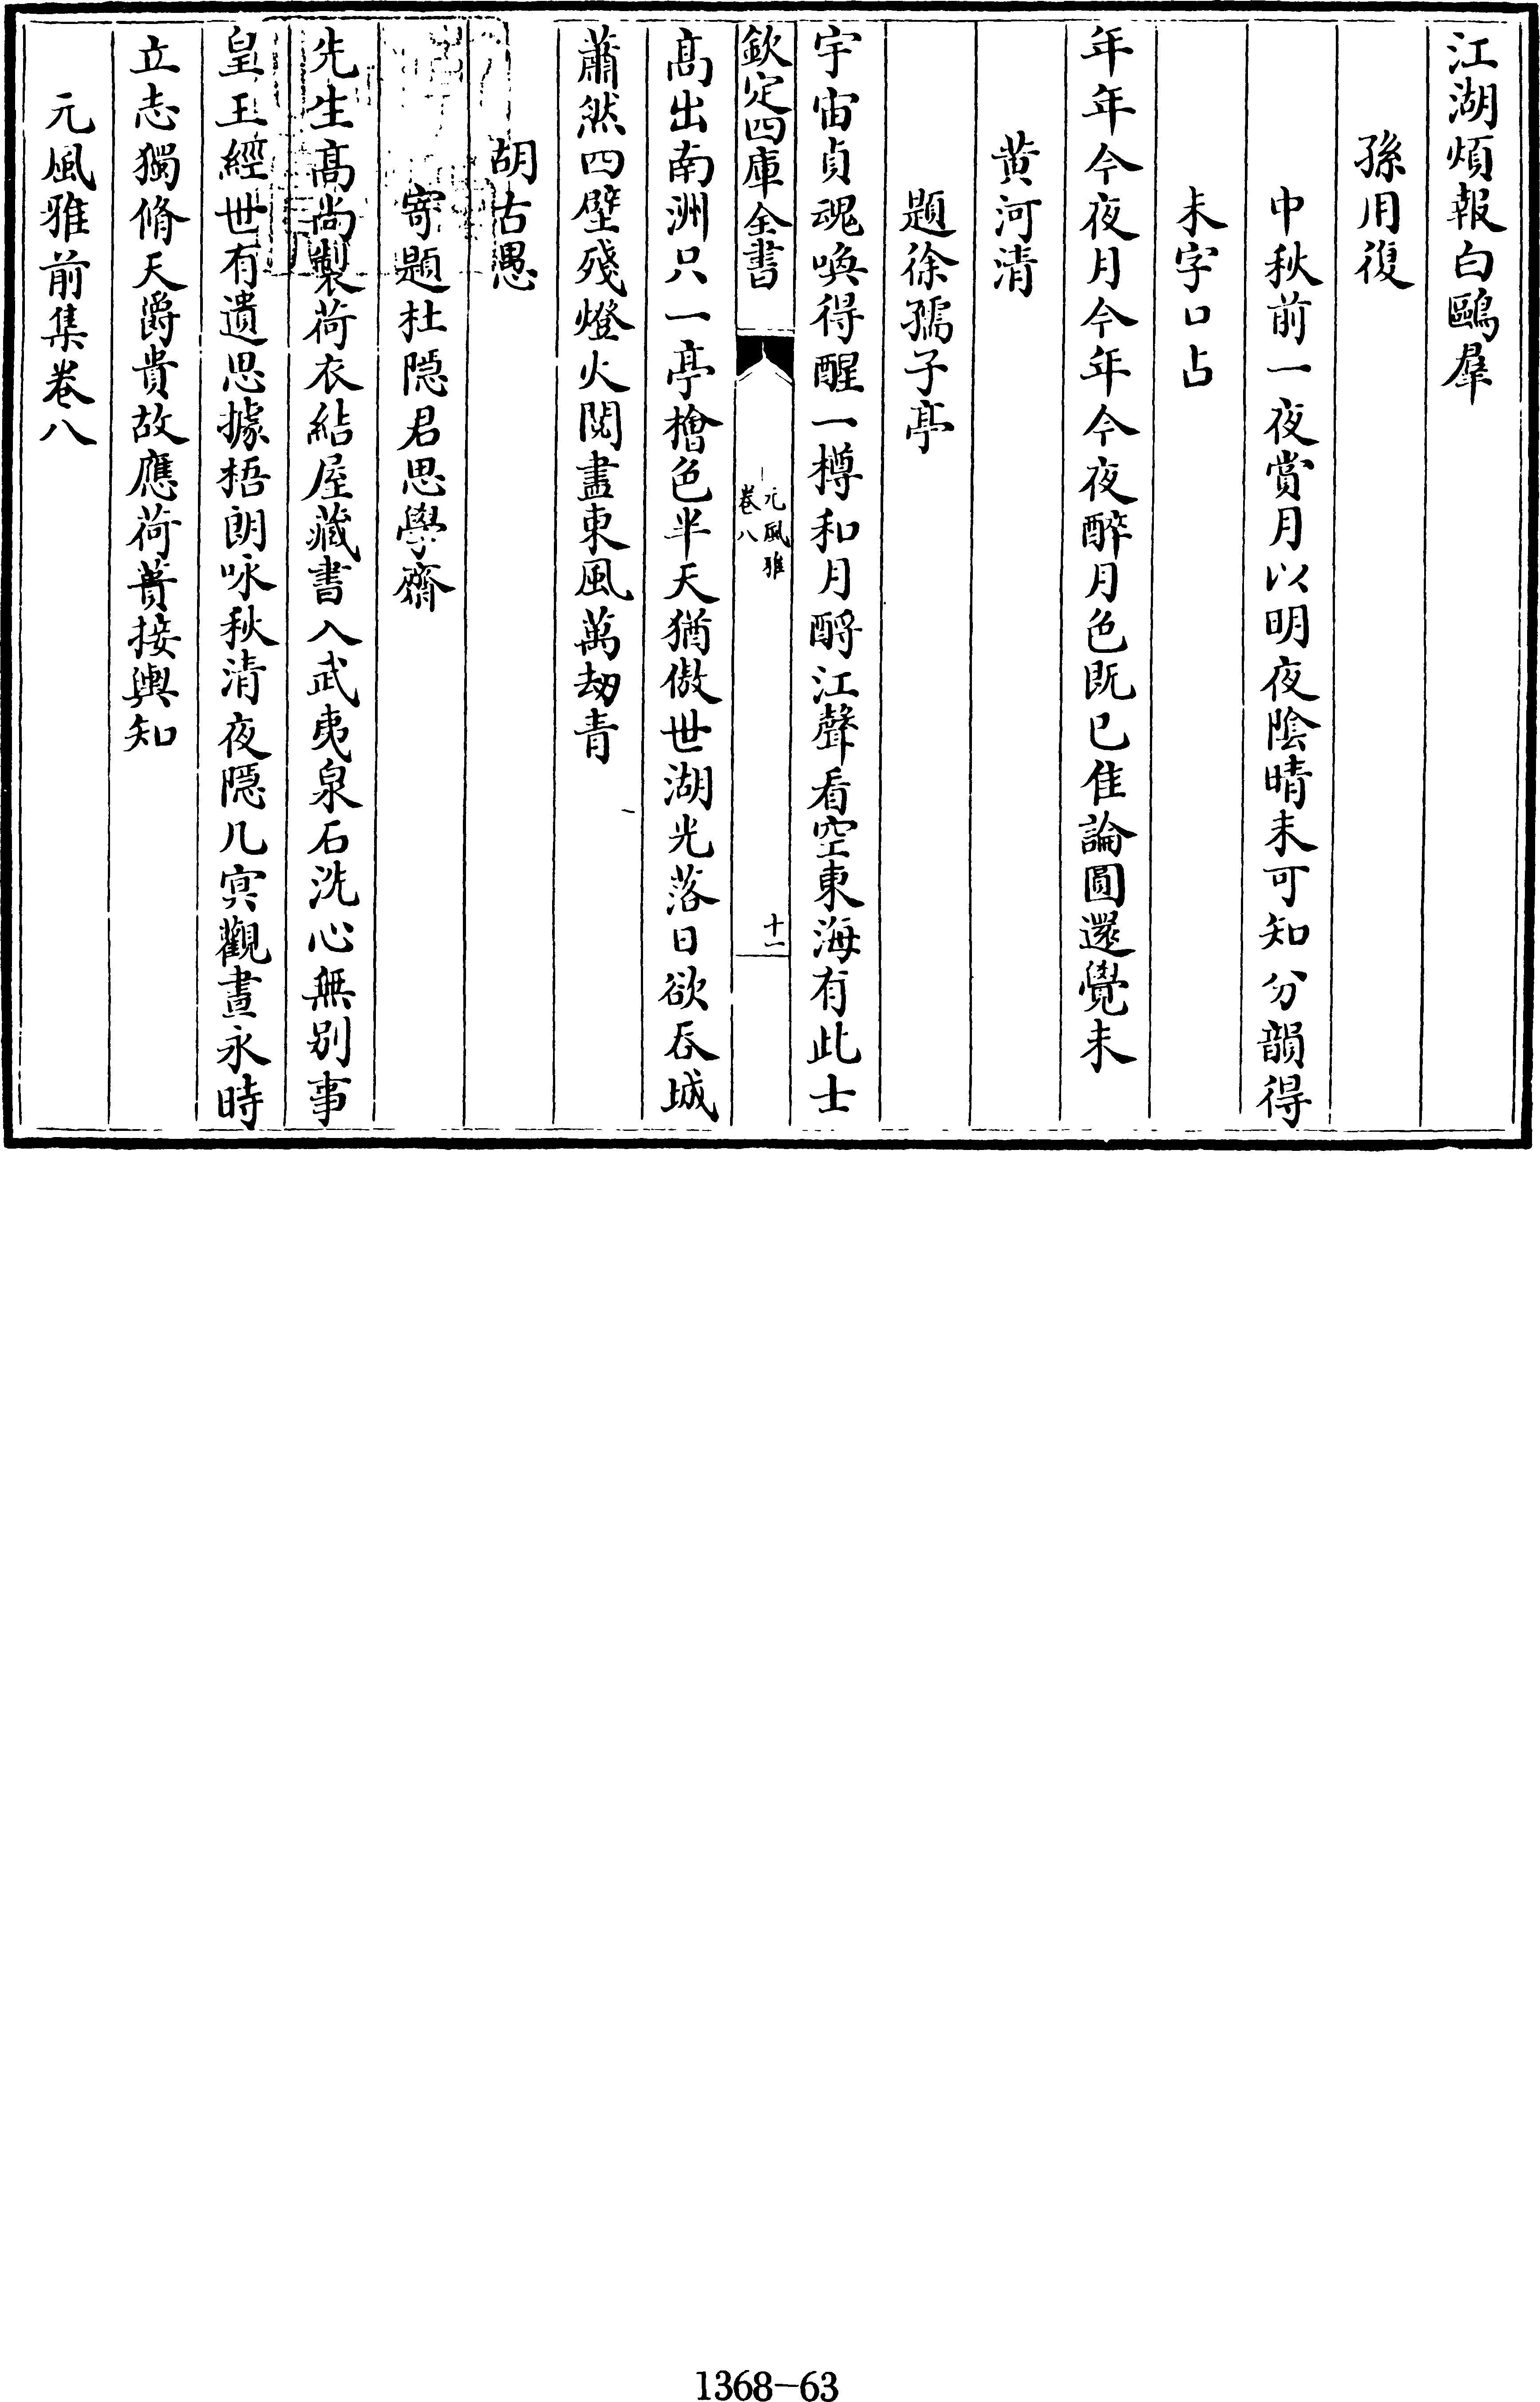 江湖煩報白鷗羣
孫用復
中秋前一夜賞月以明夜陰晴未可知分韻得
未字口占
年年今夜月今年今夜醉月色既已佳論圓還覺未
黄河清
題徐孺子亭
宇宙貞魂喚得醒一樽和月酹江聲看空東海有此士
欽定四庫全書
元風雅
卷八
十一
髙出南洲只一亭檜色半天猶傲世湖光落日欲吞城
蕭然四壁殘燈火閱盡東風萬劫青
胡古愚
寄題杜隠君思學齋
先生髙尚製荷衣結屋藏書入武夷泉石洗心無别事
皇王經世有遺思據梧朗咏秋清夜隠几㝠觀晝永時
立志獨脩天爵貴故應荷蕢接輿知
元風雅前集卷八
1368-63